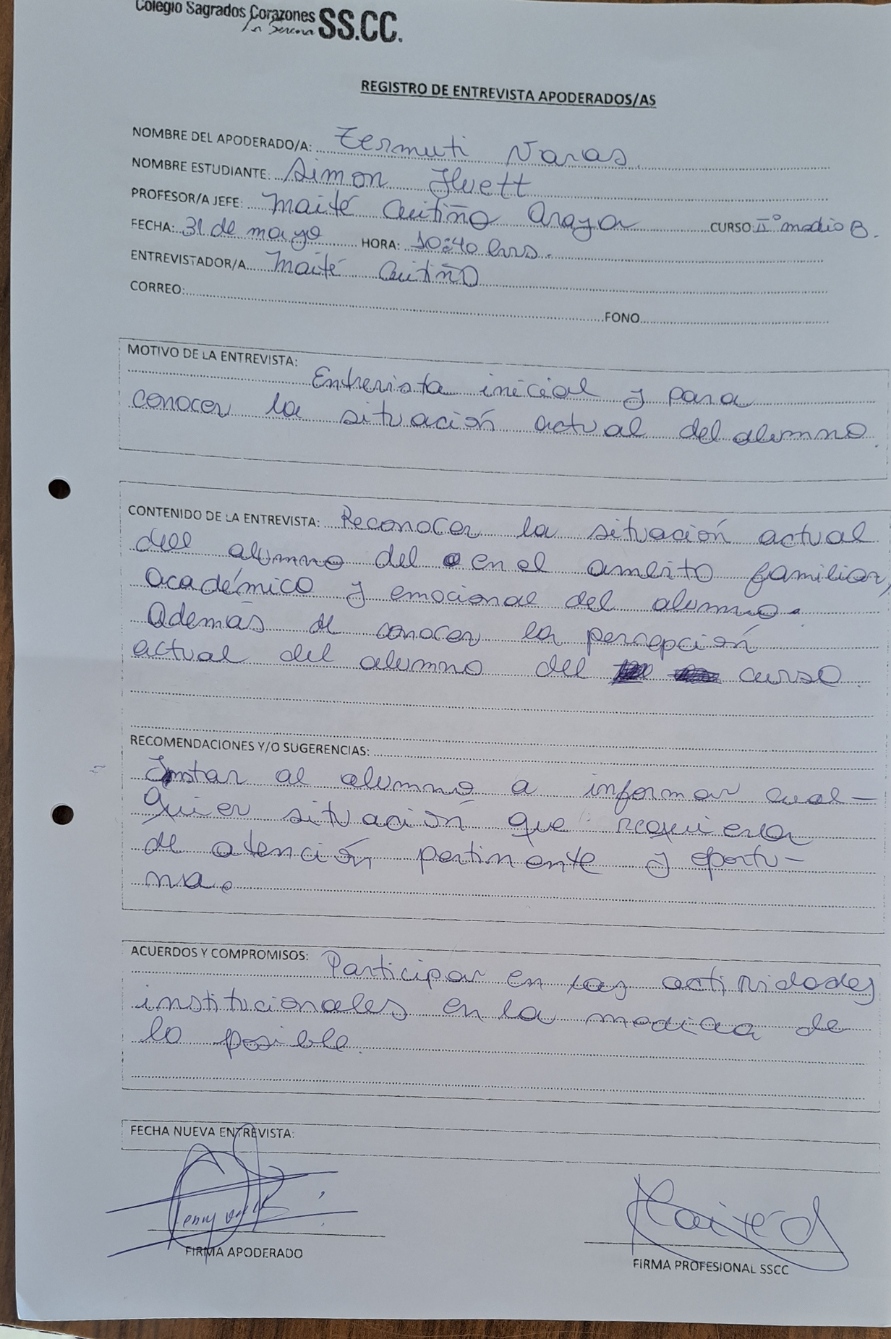 Colegio Sagrados Corazones SS.CC.
La Serena
REGISTRO DE ENTREVISTA APODERADOS/AS
NOMBRE DEL APODERADO/A: Zermuti Naras
NOMBRE ESTUDIANTE: Simon
PROFESOR/A JEFE: Maité Cutiño Araya CURSO II° medio B.
FECHA: 31 de mayo HORA: 10:40 hrs.
ENTREVISTADOR/A Maité Cutiño
CORREO: FONO
MOTIVO DE LA ENTREVISTA:
Entrevista inicial y para
conocer la situación actual del alumno.
CONTENIDO DE LA ENTREVISTA: Reconocer la situación actual
del alumno del en el ambito familiar,
académico y emocional del alumno.
Además de conocer la percepción
actual del alumno del curso.
RECOMENDACIONES Y/O SUGERENCIAS:
Instar al alumno a informar cual-
quier situación que requiera
de atención pertinente y oportu-
na.
ACUERDOS Y COMPROMISOS: Participar en las actividades
institucionales en la medida de
lo posible.
FECHA NUEVA ENTREVISTA:
FIRMA APODERADO
FIRMA PROFESIONAL SSCC